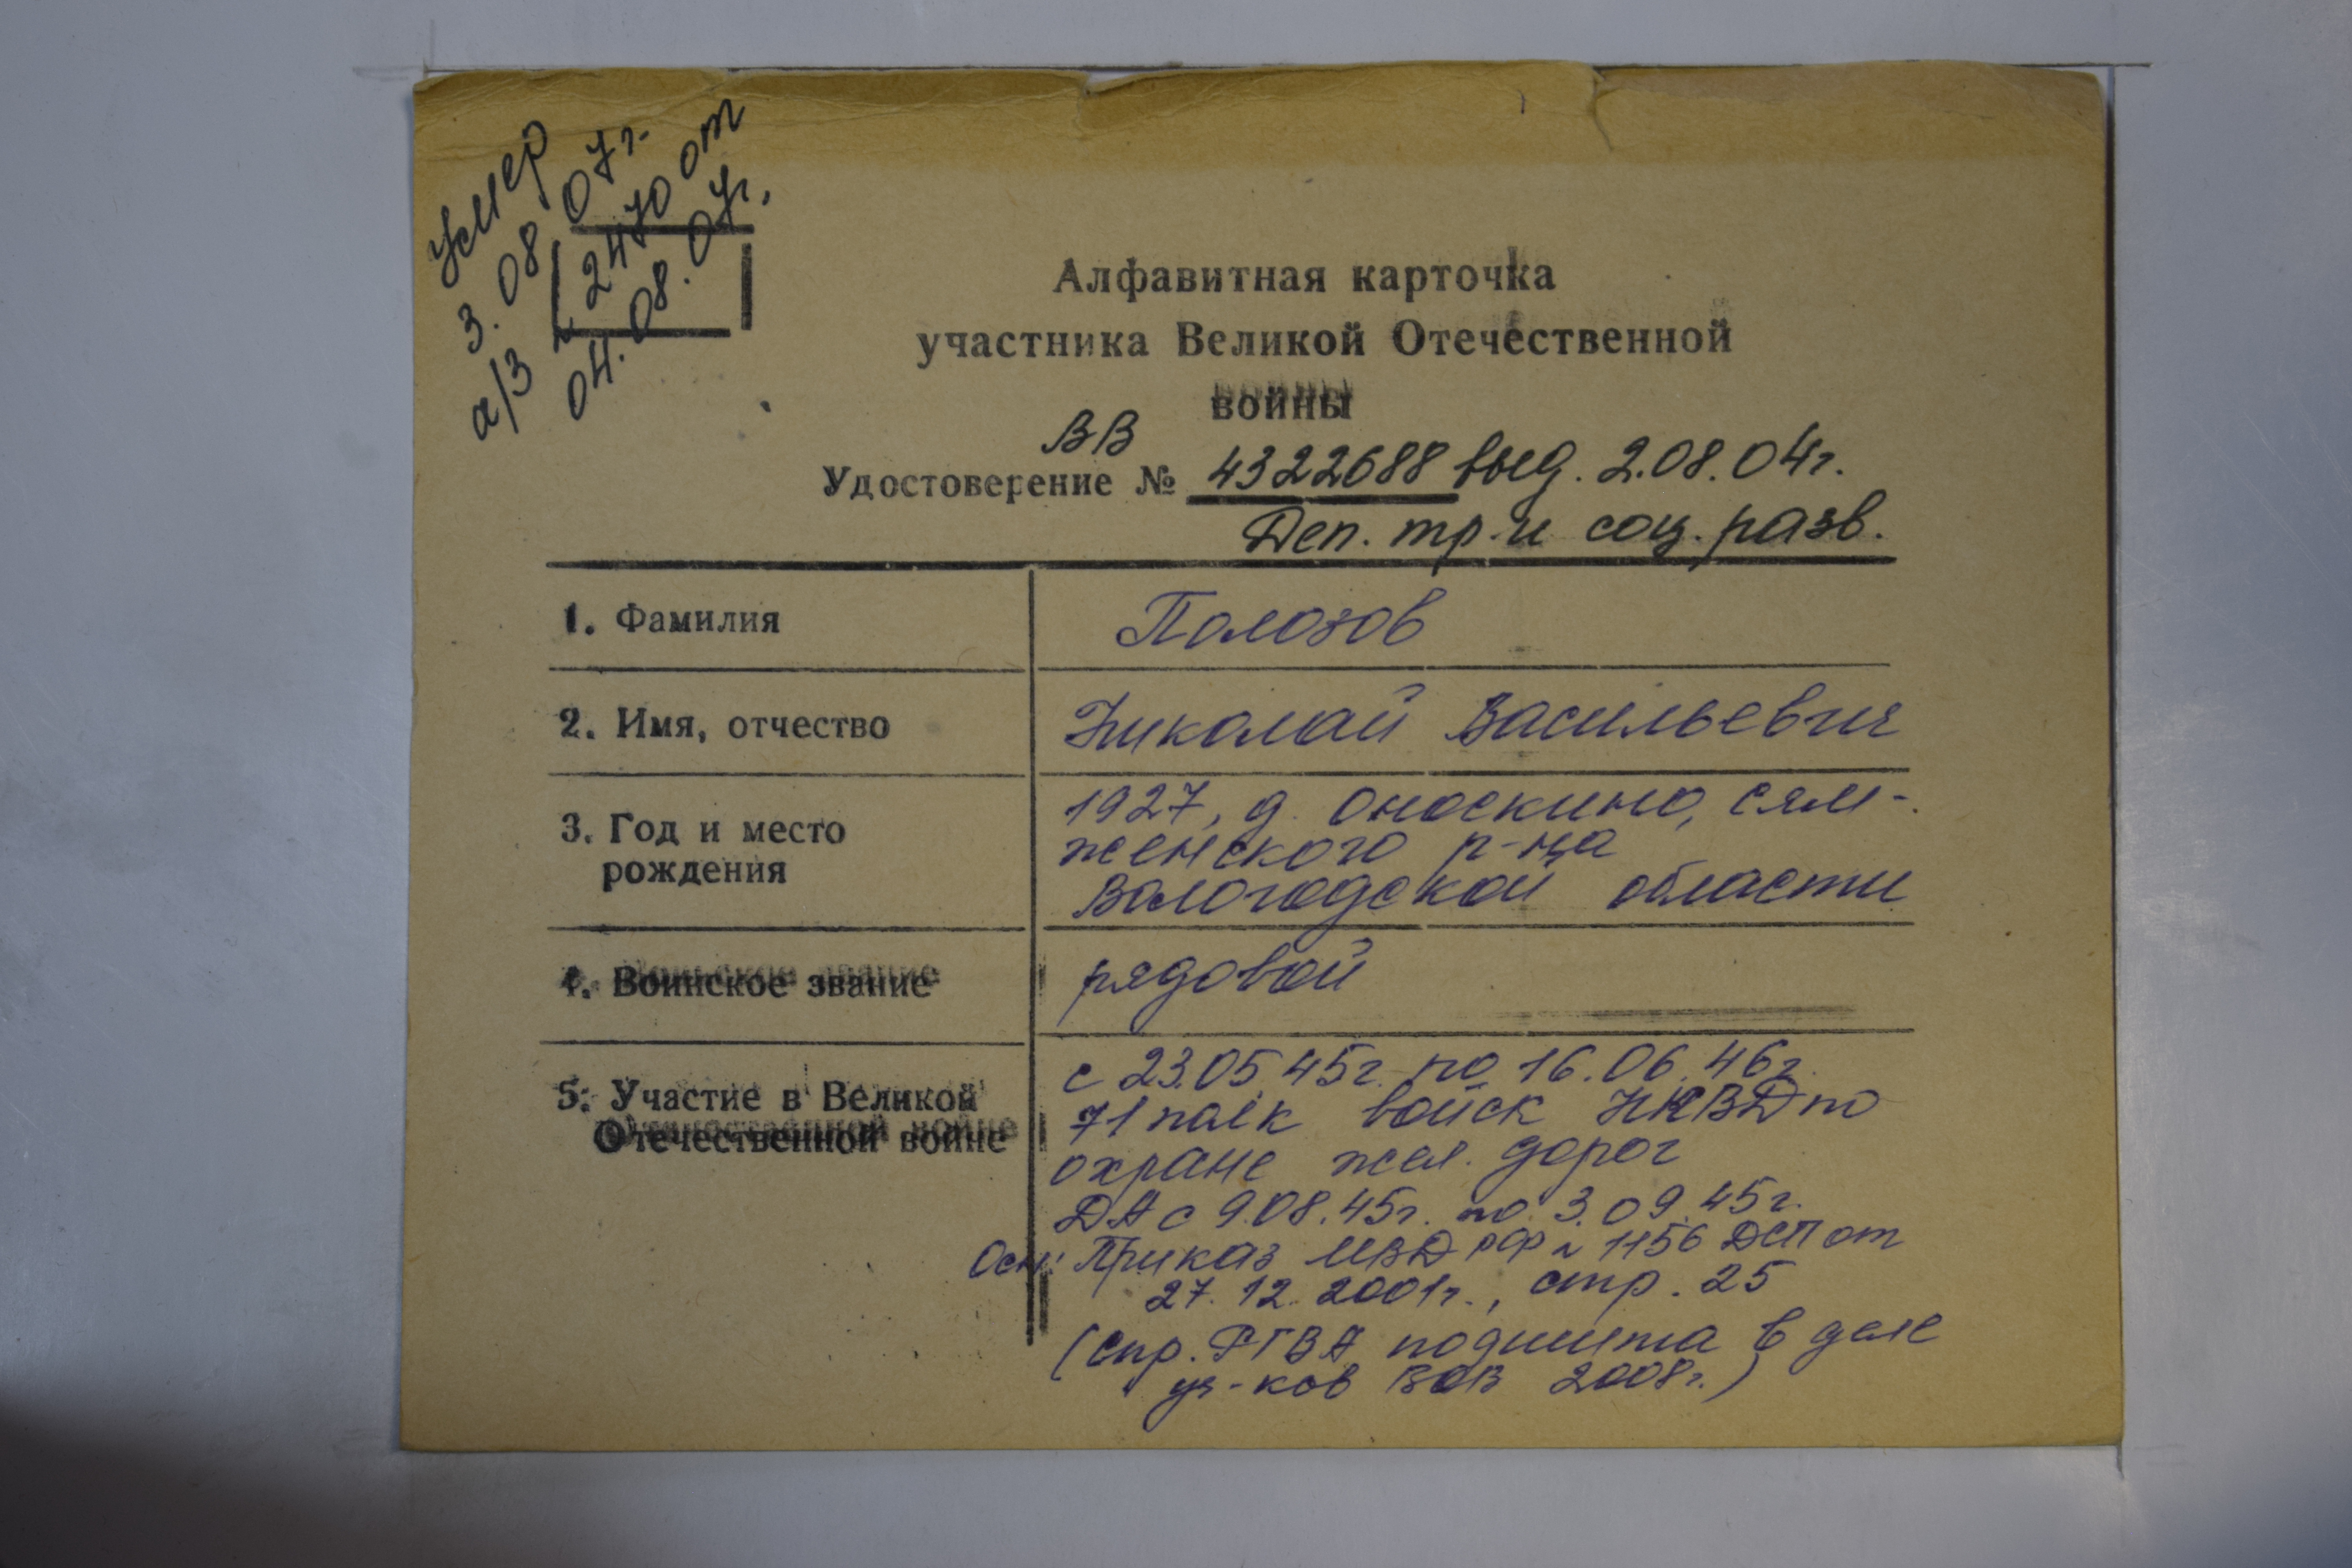 умер
3.08.07г.
а/з 2470 от
04.08.07г.
Алфавитная карточка
участника Великой Отечественной
войны
ВВ
Удостоверение № 4322688 выд. 2.08.04г.
Деп. тр. и соц. разв.
1. Фамилия
Полозов
2. Имя, отчество
Николай Васильевич
3. Год и место
рождения
1927, д. Оноскино, Сям-
женского р-на
Вологодской области
4. Воинское звание
рядовой
5. Участие в Великой
Отечественной войне
с 23.05.45г. по 16.06.46г.
71 полк войск НКВД по
охране жел. дорог
ДА с 9.08.45г. по 3.09.45г.
Осн: Приказ МВД РФ № 1156 ДСП от
27.12.2001г., стр. 25
(спр. РГВА подшита в деле
уч-ков ВОВ 2008г.)